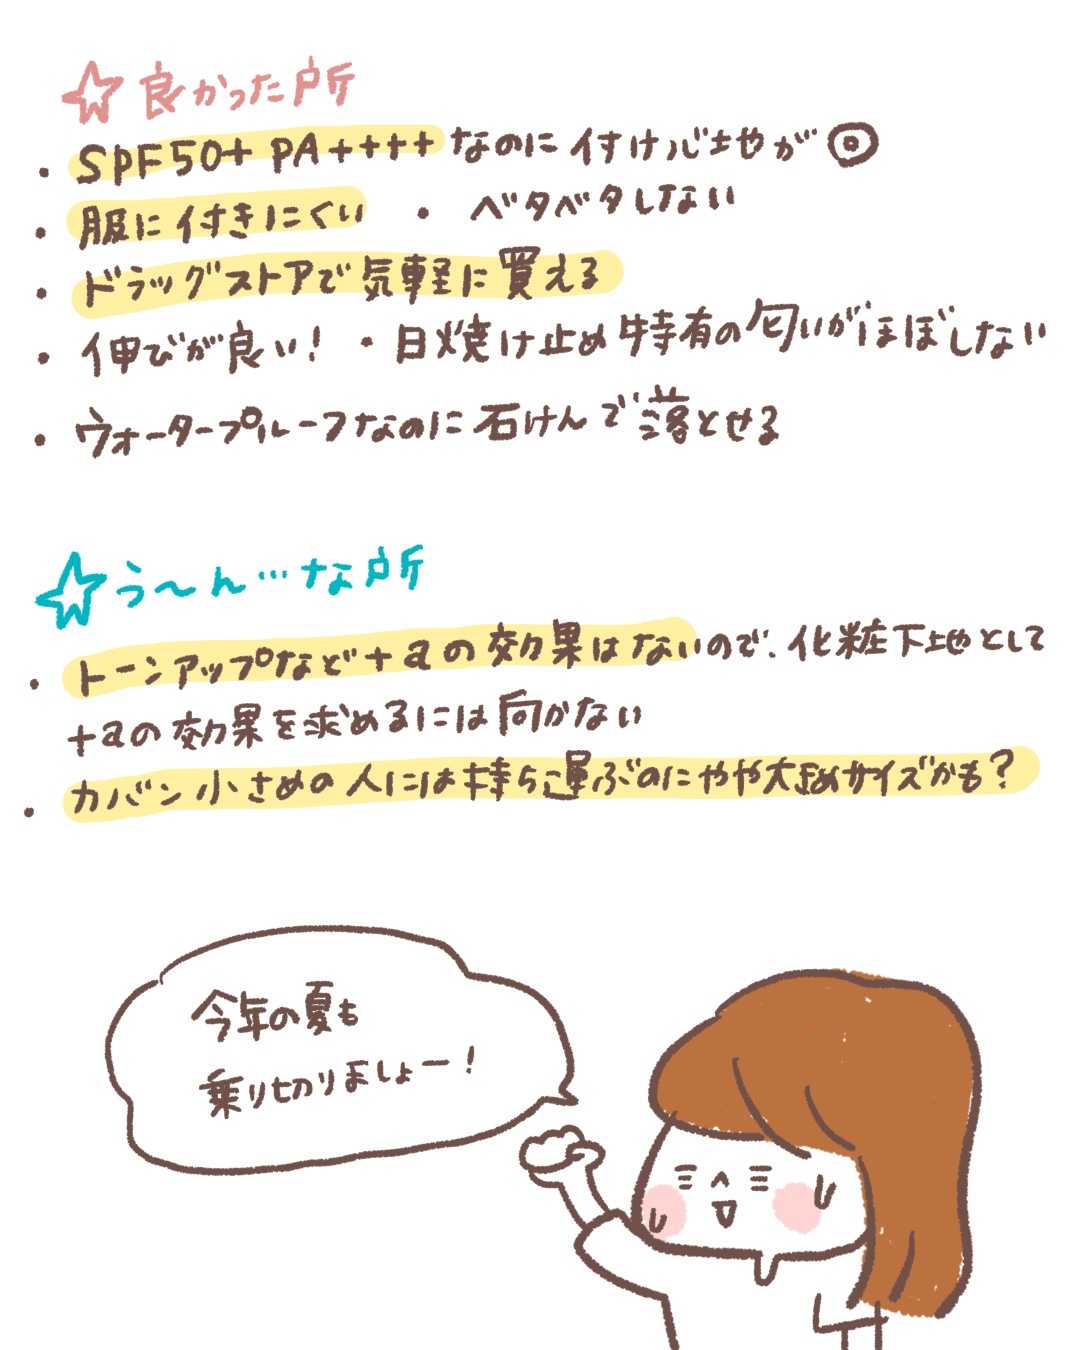 ☆良かった所
・SPF50+ PA++++なのに付け心地が◎
・服に付きにくい ・ベタベタしない
・ドラッグストアで気軽に買える
・伸びが良い! ・日焼け止め特有の匂いがほぼしない
・ウォータープルーフなのに石けんで落とせる
☆う〜ん…な所
・トーンアップなど+aの効果はないので、化粧下地として
+aの効果を求めるには向かない
・カバン小さめの人には持ち運ぶのにやや大きめサイズかも?
今年の夏も
乗り切りましょー!